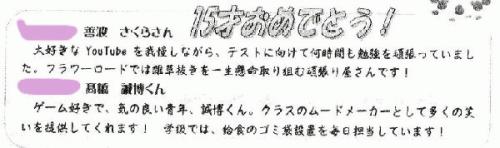 15才おめでとう!
善波 さくらさん
大好きな YouTube を我慢しながら、テストに向けて何時間も勉強を頑張っていまし
た。フラワーロードでは雑草抜きを一生懸命取り組む頑張り屋さんです!
髙橋 誠博くん
ゲーム好きで、気の良い青年、誠博くん。クラスのムードメーカーとして多くの笑
いを提供してくれます! 学級では、給食のゴミ袋設置を毎日担当しています!